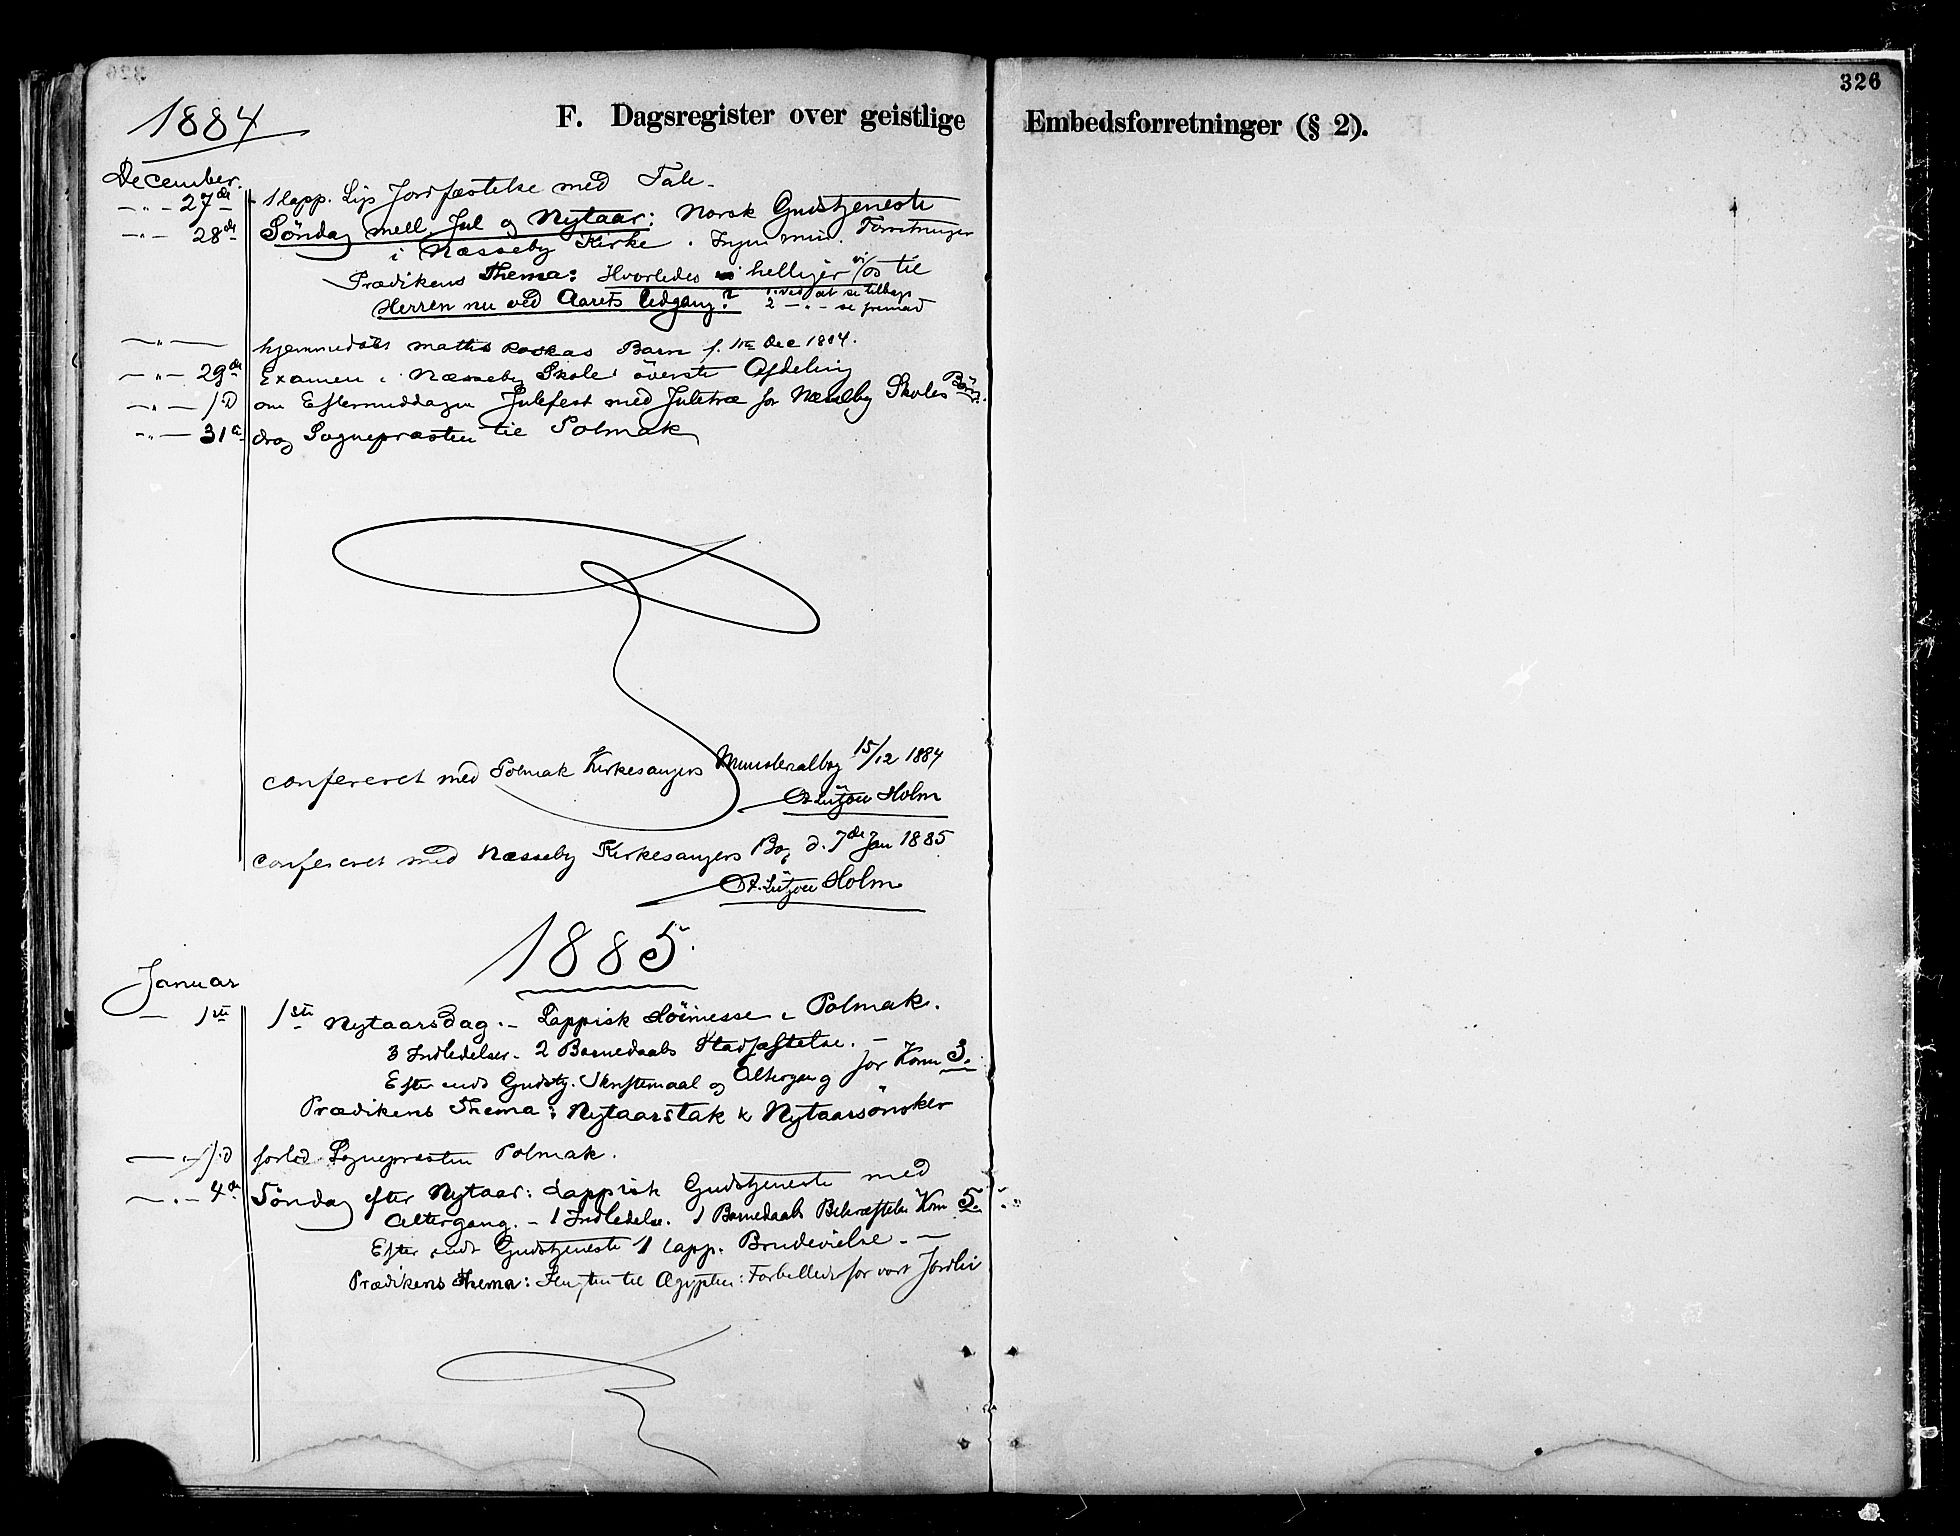 326
1884
F. Dagsregister over geistlige Embedsforretninger (§ 2).
December.
— " — 27de 1 lapp. Ligs Jordfæstelse med Tale.
— " — 28de Söndag mell. Jul og Nytaar: Norsk Gudstjeneste
i Næsseby Kirke. Ingen min. Forretninger
Prædikens Thema: Hvorledes helliger vi os til
Herren nu ved Aarets Udgang? 1. ved at se tilbage
2 — " — se fremad
— " — hjemmedöbt Mathis Barn f. 11te Dec 1884.
— " — 29de Examen i Næsseby Skole överste Afdeling
— " — s/d om Eftermiddagen Julefest med Juletræ for Næsseby Skoles Börn.
— " — 31te drog Sognepræsten til Polmak
confereret med Polmak Kirkesangers Ministerialbog 15/12 1884
Lützow Holm
confereret med Næsseby Kirkesangers Bog d. 7de Jan 1885
Lützow Holm
1885.
Januar
— 1ste 1ste Nytaarsdag. — Lappisk Höimesse i Polmak.
3 Indledelser. 2 Barnedaabs Stadfæstelse. —
Efter endt Gudstj. Skriftemaal og Altergang for Kom 3.
Prædikens Thema: Nytaarstak & Nytaarsönsker
— " — s/d forlod Sognepræsten Polmak.
— " — 4de Söndag efter Nytaar: Lappisk Gudstjeneste med
Altergang. — 1 Indledelse. 1 Barnedaabs Bekræftelse Kom 5.
Efter endt Gudstjeneste 1 lapp. Brudevielse. —
Prædikens Thema: Flugten til Ægypten: Forbillede for vort Jordliv